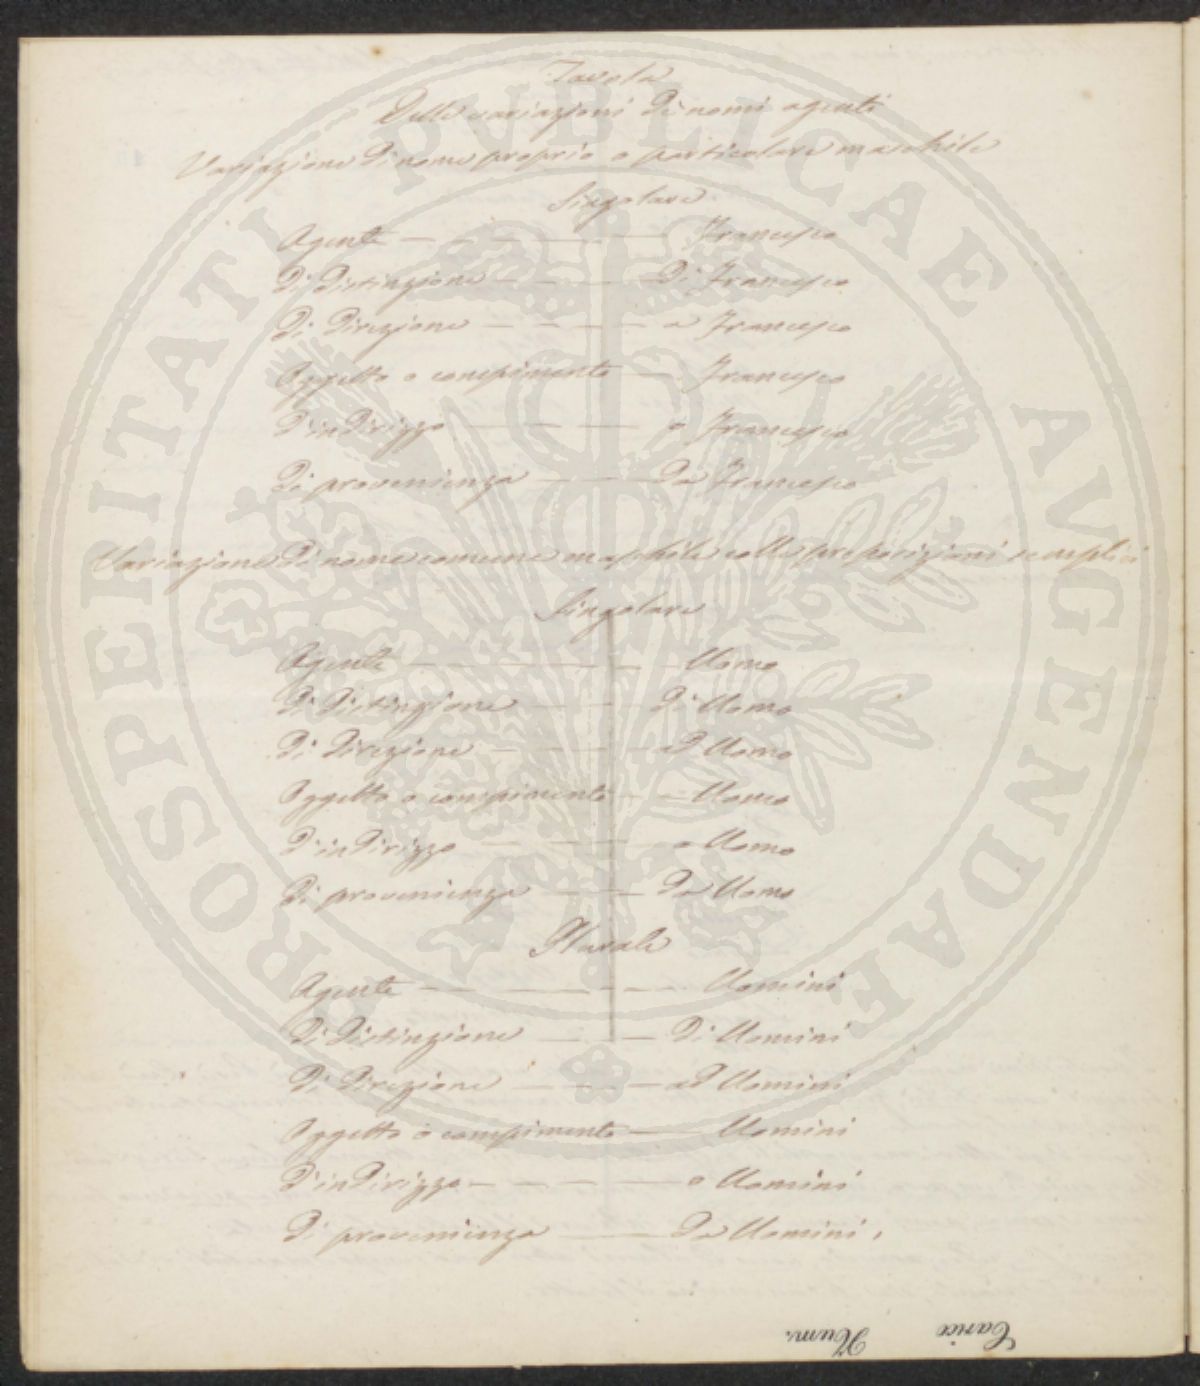 Tavola
Delle variazioni di nomi agenti
Variazione di nome proprio o particolare maschile
Singolare
Agente — — — — — — Francesco
Di distinzione — — — — di Francesco
Di direzione — — — — a Francesco
Oggetto o compimento — Francesco
D'indirizzo — — — — o Francesco
Di provenienza — — — da Francesco
Variazione di nome comune maschile colle preposizioni semplici
Singolare
Agente — — — — — — Uomo
Di distinzione — — — di Uomo
Di direzione — — — — ad Uomo
Oggetto o compimento — — Uomo
D'indirizzo — — — — o Uomo
Di provenienza — — — da Uomo
Plurale
Agente — — — — — — Uomini
Di distinzione — — — di Uomini
Di direzione — — — — ad Uomini
Oggetto o compimento — Uomini
D'indirizzo — — — — o Uomini
Di provenienza — — da Uomini,
Carice
Num.
PROSPERITATI PVBLICAE AVGENDAE